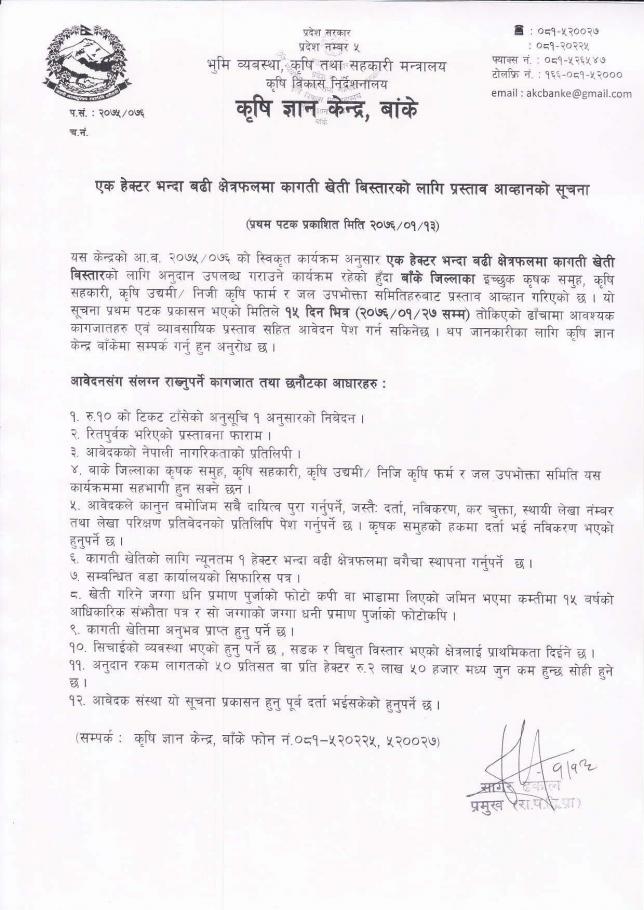 प्रदेश सरकार
प्रदेश नम्बर ५
भुमि व्यवस्था, कृषि तथा सहकारी मन्त्रालय
कृषि विकास निर्देशनालय
कृषि ज्ञान केन्द्र, बांके
: ०८१-५२००२७
: ०८१-२०२२५
फ्याक्स नं. : ०८१-५२६५४७
टोलफ्रि नं. : १६६-०८१-५२०००
email : akcbanke@gmail.com
प.सं. : २०७५/०७६
च.नं.
एक हेक्टर भन्दा बढी क्षेत्रफलमा कागती खेती बिस्तारको लागि प्रस्ताव आव्हानको सूचना
(प्रथम पटक प्रकाशित मिति २०७६/०१/१३)
यस केन्द्रको आ.ब. २०७५/०७६ को स्विकृत कार्यक्रम अनुसार एक हेक्टर भन्दा बढी क्षेत्रफलमा कागती खेती
बिस्तारको लागि अनुदान उपलब्ध गराउने कार्यक्रम रहेको हुँदा बाँके जिल्लाका इच्छुक कृषक समुह, कृषि
सहकारी, कृषि उद्यमी/ निजी कृषि फार्म र जल उपभोक्ता समितिहरुबाट प्रस्ताव आव्हान गरिएको छ । यो
सूचना प्रथम पटक प्रकासन भएको मितिले १५ दिन भित्र (२०७६/०१/२७ सम्म) तोकिएको ढाँचामा आवश्यक
कागजातहरु एवं व्यावसायिक प्रस्ताव सहित आवेदन पेश गर्न सकिनेछ । थप जानकारीका लागि कृषि ज्ञान
केन्द्र बाँकेमा सम्पर्क गर्नु हुन अनुरोध छ ।
आवेदनसंग संलग्न राख्नुपर्ने कागजात तथा छनौटका आधारहरु :
१. रु.१० को टिकट टाँसेको अनुसूचि १ अनुसारको निवेदन ।
२. रितपुर्वक भरिएको प्रस्तावना फाराम ।
३. आबेदकको नेपाली नागरिकताको प्रतिलिपी ।
४. बाके जिल्लाका कृषक समुह, कृषि सहकारी, कृषि उद्यमी/ निजि कृषि फर्म र जल उपभोक्ता समिति यस
कार्यक्रममा सहभागी हुन सक्ने छन ।
५. आवेदकले कानुन बमोजिम सबै दायित्व पुरा गर्नुपर्ने, जस्तै: दर्ता, नबिकरण, कर चुक्ता, स्थायी लेखा नंम्बर
तथा लेखा परिक्षण प्रतिवेदनको प्रतिलिपि पेश गर्नुपर्ने छ । कृषक समुहको हकमा दर्ता भई नबिकरण भएको
हुनुपर्ने छ ।
६. कागती खेतिको लागि न्यूनतम १ हेक्टर भन्दा बढी क्षेत्रफलमा बगैचा स्थापना गर्नुपर्ने छ ।
७. सम्बन्धित वडा कार्यालयको सिफारिस पत्र ।
८. खेती गरिने जग्गा धनि प्रमाण पुर्जाको फोटो कपी वा भाडामा लिएको जमिन भएमा कम्तीमा १५ वर्षको
आधिकारिक संझौता पत्र र सो जग्गाको जग्गा धनी प्रमाण पुर्जाको फोटोकपि ।
९. कागती खेतिमा अनुभव प्राप्त हुनु पर्ने छ ।
१०. सिचाईको व्यवस्था भएको हुनु पर्ने छ , सडक र बिद्युत विस्तार भएको क्षेत्रलाई प्राथमिकता दिईने छ ।
११. अनुदान रकम लागतको ५० प्रतिसत वा प्रति हेक्टर रु.२ लाख ५० हजार मध्य जुन कम हुन्छ सोही हुने
छ ।
१२. आवेदक संस्था यो सूचना प्रकासन हुनु पूर्व दर्ता भईसकेको हुनुपर्ने छ ।
(सम्पर्क : कृषि ज्ञान केन्द्र, बाँके फोन नं.०८१-५२०२२५, ५२००२७)
१/१३
सागर ढकाल
प्रमुख